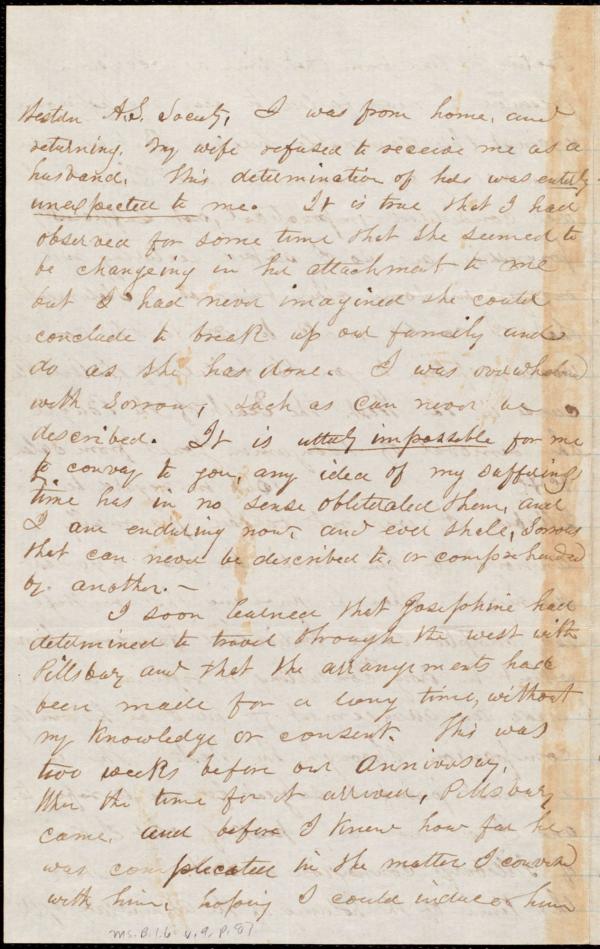 Western A.S. Society, I was from home, and
returning, my wife refused to receive me as a
husband. This determination of hers was entirely
unexpected to me. It is true that I had
observed for some time that she seemed to
be changeing in her attachment to me
but I had never imagined she could
conclude to break up our family and
do as she has done. I was overwhelmed
with sorrow, such as can never be
described. It is utterly impossible for me
to convay to you, any idea of my suffering
time has in no sense obliterated them, and
I am enduring now, and ever shall, sorrows
that can never be described to, or comprehended
by another. —
I soon learned that Josephine had
determined to travel through the west with
Pillsbury and that the arrangements had
been made for a long time, without
my knowledge or consent. This was
two weeks before our Anniversary.
When the time for it arrived, Pillsbury
came, and before I knew how far he
was complicated in the matter I conversed
with him, hoping I could induce him
Ms. B. 1. 6 v. 9, p. 87